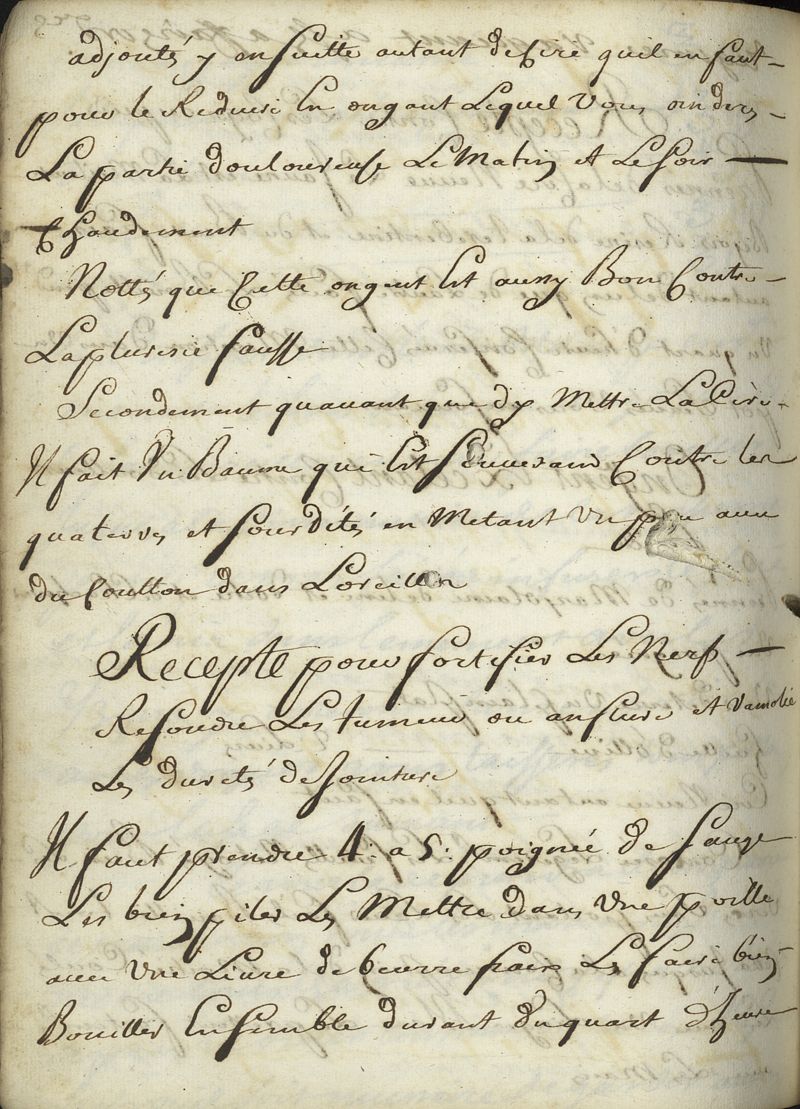 adjoutés y ensuitte autant de Cire quil en faut
pour le Reduire En ongant Lequel Vous oinderes
La partie douloureuse Le Matin et Le Soir
Chaudement
Nottés que Cette ongent Est aussy Bon Contre
La pluresie fausse
Secondement quauant que dy Mettre La Cire
Il fait Vn Baume qui Est Souuerain Contre les
quaterres et Sourdités en Metant Vn peu auec
du Coutton dans Loreillen
Recepte pour fortifier Les Nerfs
Resoudre Les tumeur ou anflure et Ramolié
Les duretés de Jointure
Il faut prendre 4. a 5. poignée de Sauge
Les bien piler Les Mettre dans Vne poille
auec Vne Liure de beurre frais Les faire bien
Bouiller Ensemble durant Vn quart d'heure